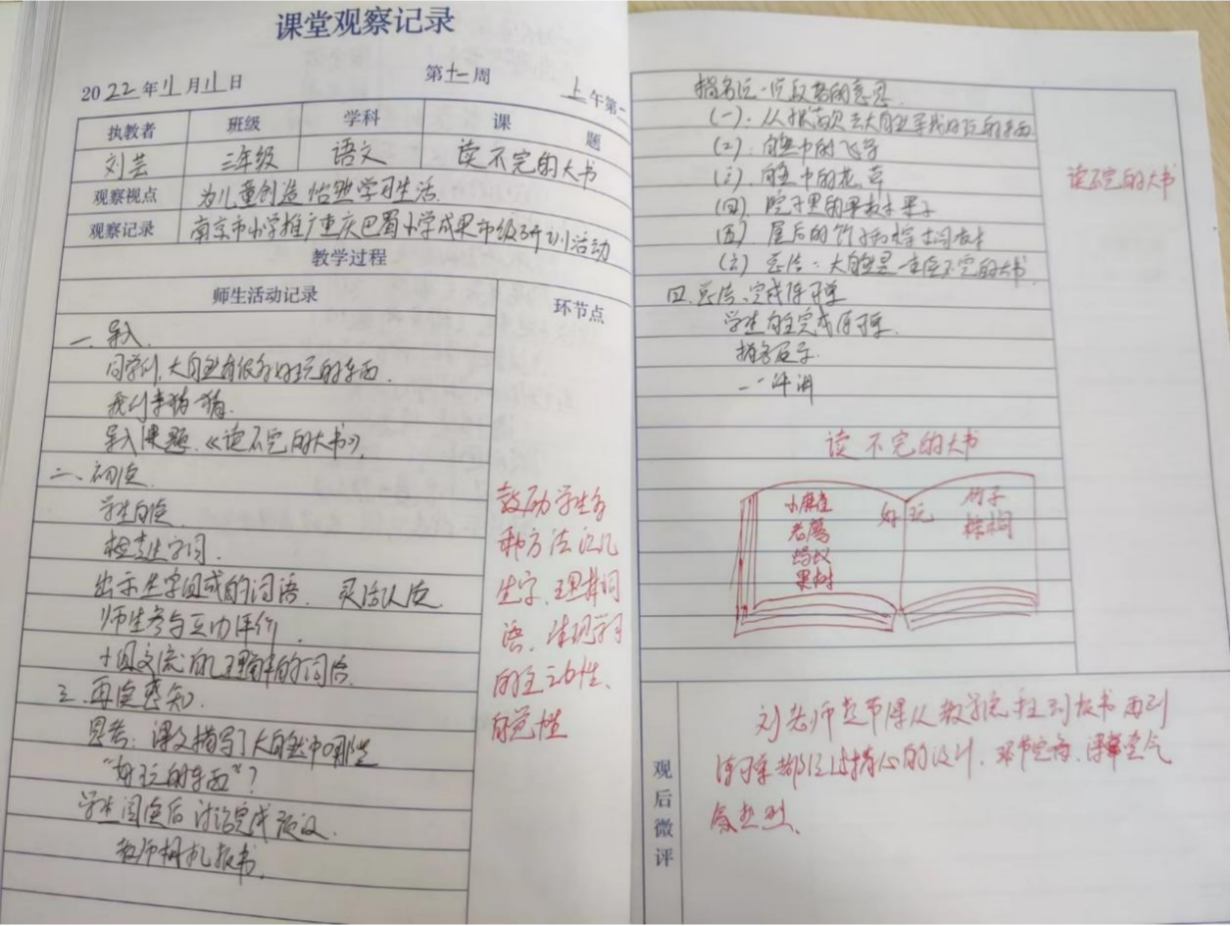 课堂观察记录
2022年11月11日 第十一周 上午第一
执教者 班级 学科 课题
刘芸 三年级 语文 读不完的大书
观察视点 为儿童创造怡然学习生活
观察记录 南京市小学推广重庆巴蜀小学成果市级研训活动
教学过程
师生活动记录 环节点
一、导入
同学们,大自然有很多好玩的东西,
我们来猜猜.
导入课题《读不完的大书》.
二、初读
学生自读
检查生字词.
出示生字组成的词语
师生参与互动评价
三、再读感知
思考:课文描写了大自然中哪些
“好玩的东西”?
学生阅读后讨论完成
教师相机板书.
鼓励学生多
种方法记忆
生字、理解词
语,学习
的主动性、
自觉性
指名说一说段落的意思.
(一)、大自然寻找好玩的东西
(二)、自然中的飞鸟
(三)、自然中的花、草
(四)、院子里的果树、果子
(五)、屋后的竹子和棕榈
(六)总结:大自然是一本读不完的大书
四、总结、完成练习单
学生自主完成练习单.
指名展示.
一一评讲
读不完的大书
读不完的大书
小麻雀
老鹰
蚂蚁
果树
好玩
竹子
棕榈
观后微评
刘老师这节课从教学流程到板书再到
练习单都经过精心的设计,环节完整、课堂气
氛热烈.